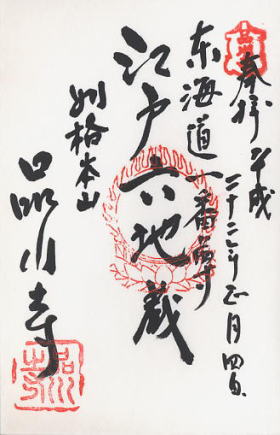 奉拝 平成二十二年正月四日
東海道一番霊場
江戸六地蔵
別格本山
品川寺
品川寺